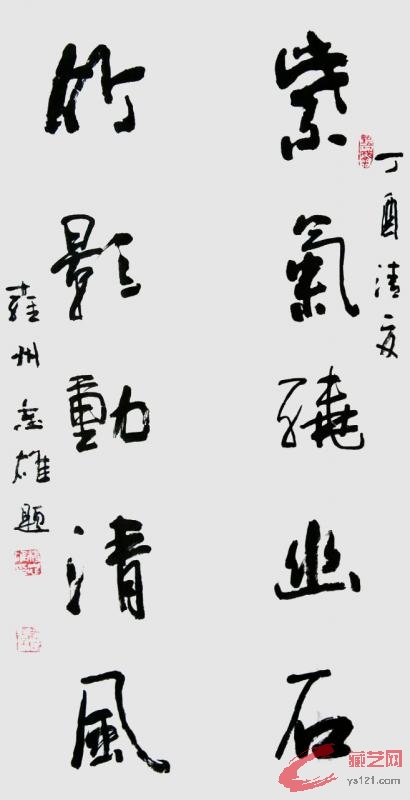 丁酉清夏
紫氣繞幽石
竹影動清風
雍州志雄題
藏艺网
ys121.com